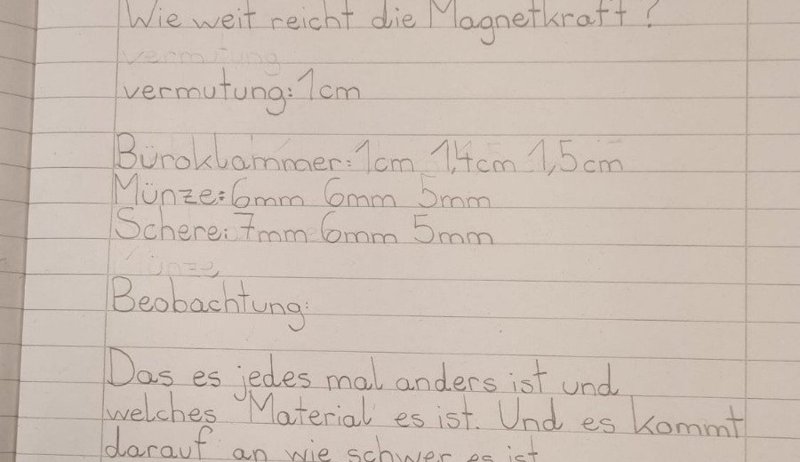 Wie weit reicht die Magnetkraft?
vermutung
vermutung: 1cm
Büroklammer: 1cm 1,4cm 1,5cm
Münze: 6mm 6mm 5mm
Schere: 7mm 6mm 5mm
Münze
Beobachtung:
Das es jedes mal anders ist und
welches Material es ist. Und es kommt
darauf an wie schwer es ist